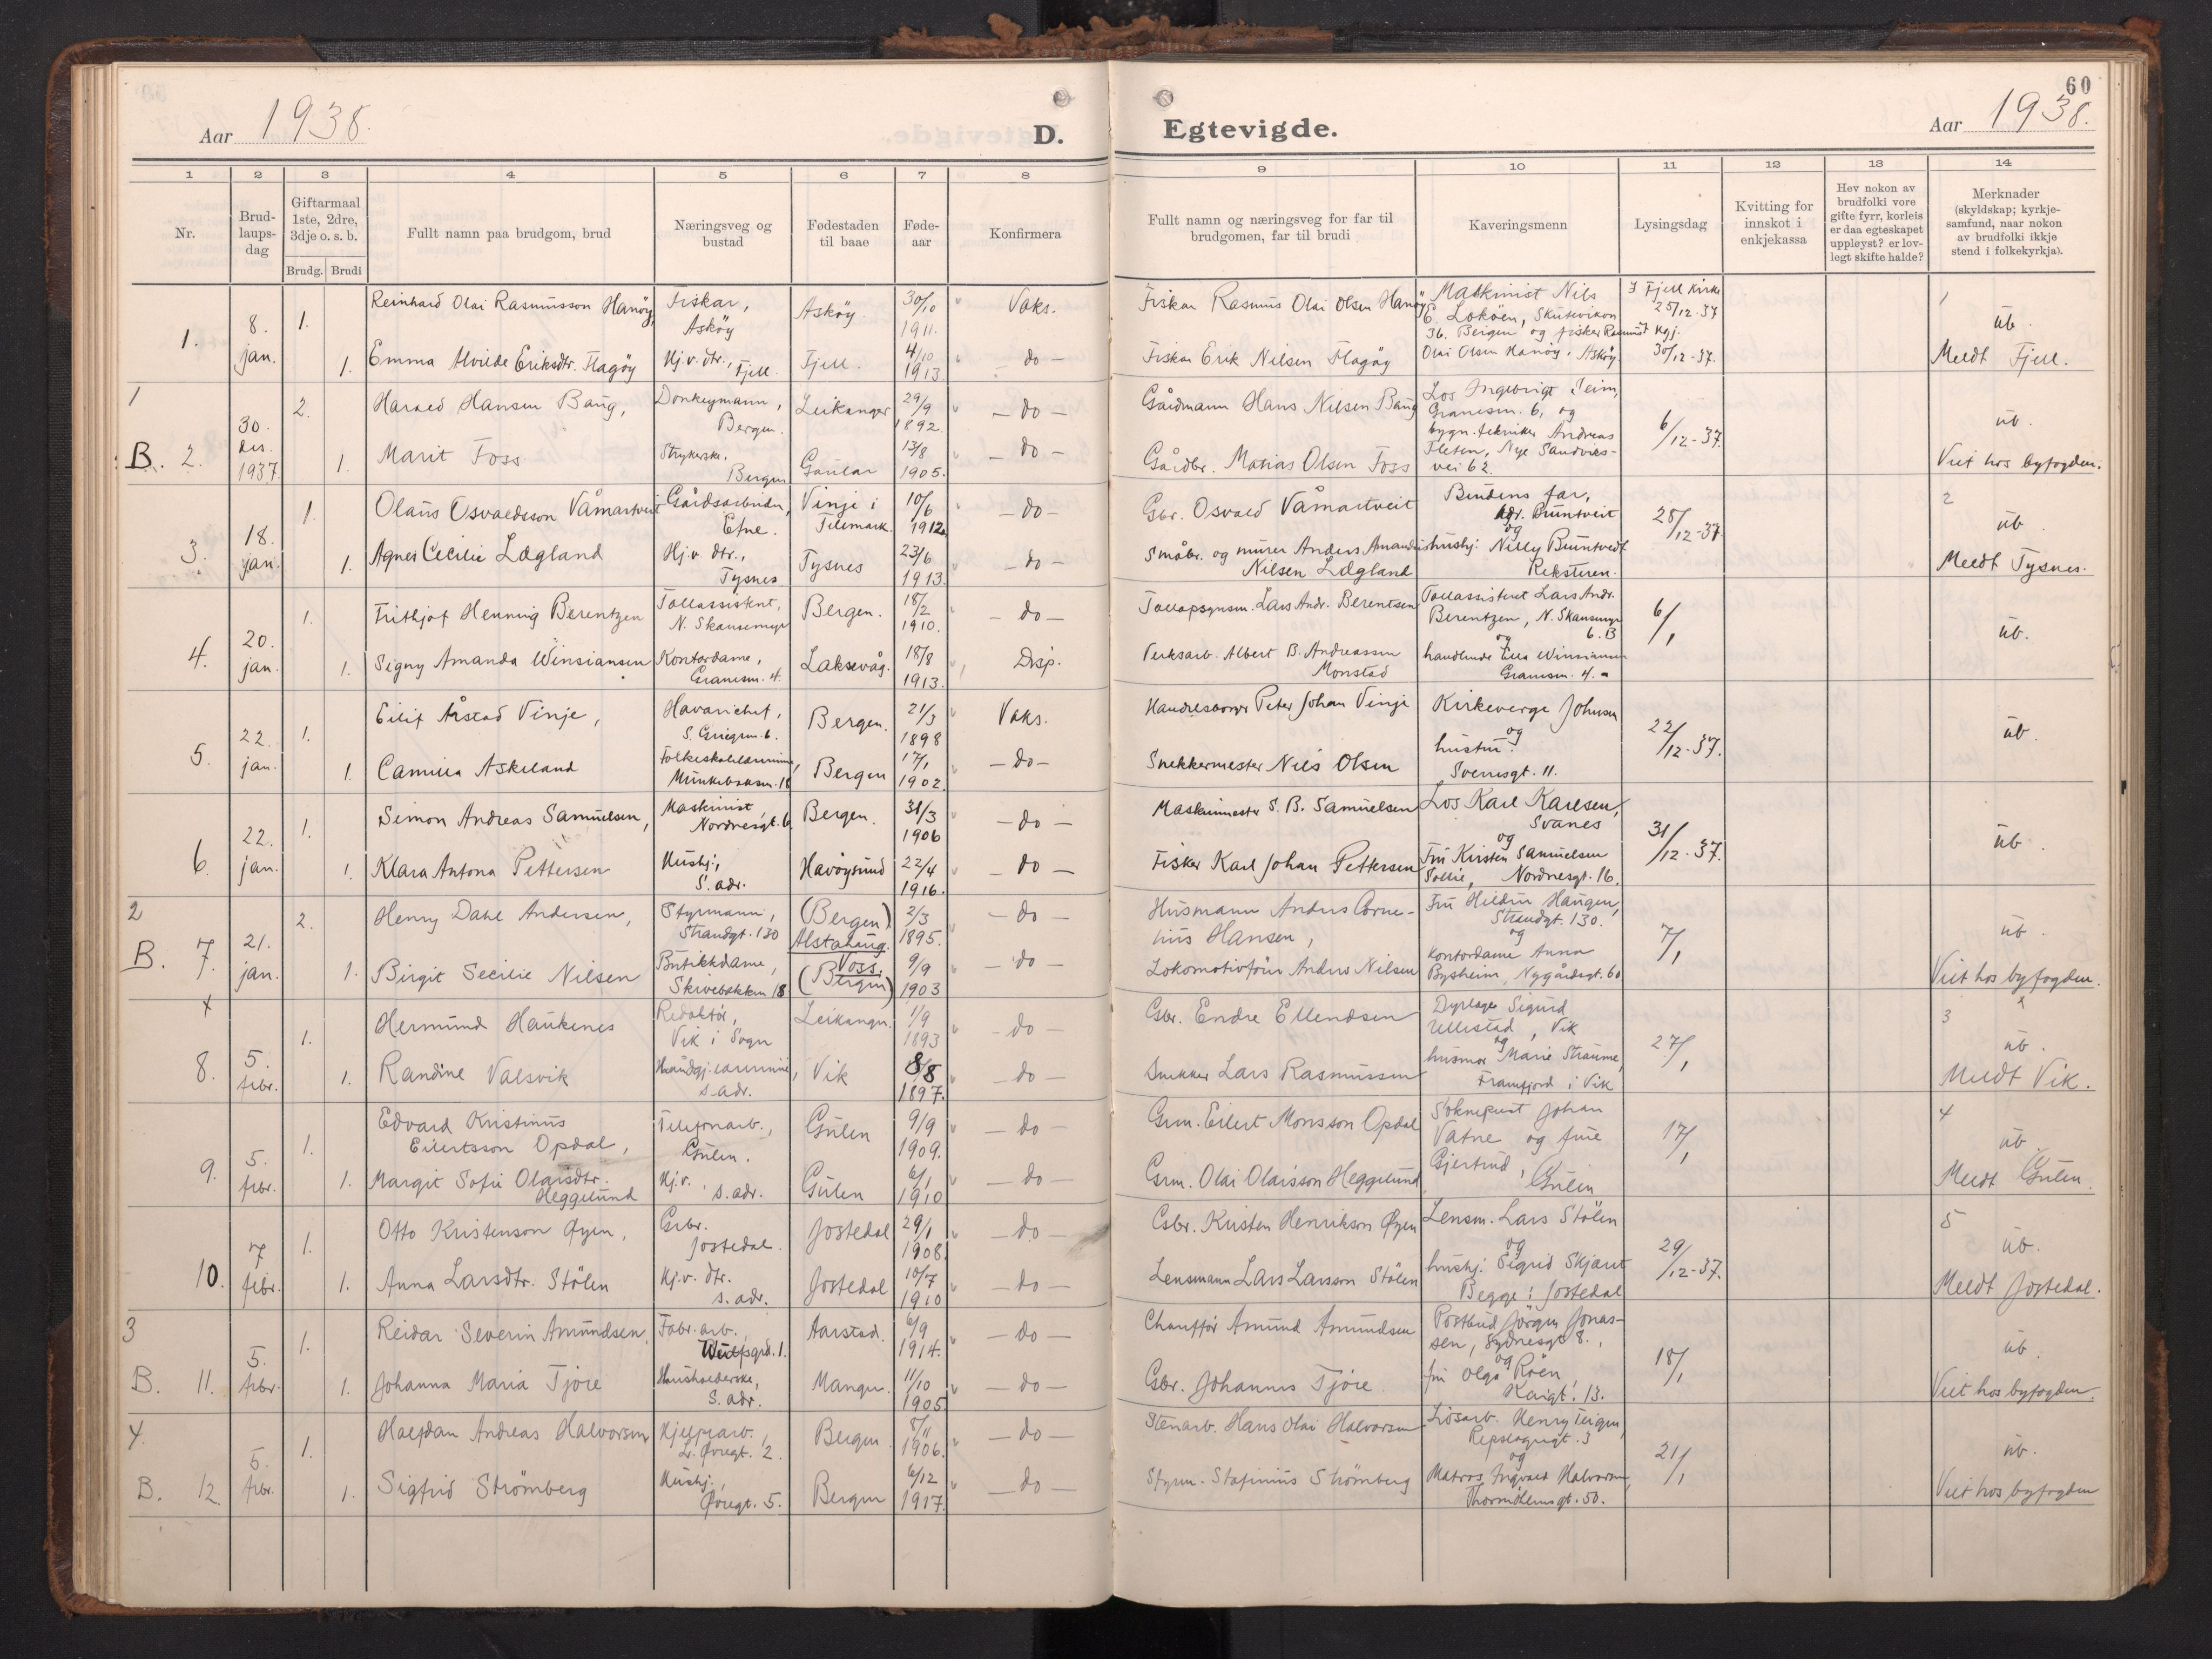 Aar 1938. D. Egtevigde. Aar 1938. 60
1 2 3 4 5 6 7 8 9 10 11 12 13 14
Nr.
Brud-
laups-
dag
Giftarmaal
1ste, 2dre,
3dje o. s. b.
Brudg. Brudi
Fullt namn paa brudgom, brud
Næringsveg og
bustad
Fødestaden
til baae
Føde-
aar
Konfirmera
Fullt namn og næringsveg for far til
brudgomen, far til brudi
Kaveringsmenn
Lysingdag
Kvitting for
innskot i
enkjekassa
Hev nokon av
brudfolki vore
gifte fyrr, korleis
er daa egteskapet
uppløyst? er lov-
legt skifte halde?
Merknader
(skyldskap; kyrkje-
samfund, naar nokon
av brudfolki ikkje
stend i folkekyrkja).
1. 8. jan.
1. Reinhard Olai Rasmusson Hanøy, Fiskar, Askøy Askøy 30/10 1911. Vaks.
1. Emma Alvilde Eriksdtr. Flagøy Hj.v. dtr., Fjell. Fjell. 4/10 1913. - do -
Fiskar Rasmus Olai Olsen Hanøy
Fiskar Erik Nilsen Flagøy
Maskinist Nils
E. Lokøen, Skutevikon
36. Bergen og fisker Rasmus
Olai Olsen Hanøy, Askøy
I Fjell Kirke
25/12-37
Kgj.
30/12-37.
1
ub.
Meldt Fjell.
1
B. 2. 30. des. 1937.
2. Harald Hansen Baug, Donkeymann, Bergen. Leikanger 29/9 1892. - do -
1. Marit Foss Strykerske, Bergen Gaular 13/8 1905. - do -
Gårdmann Hans Nilsen Baug
Gårdbr. Matias Olsen Foss
Los Ingebrigt Seim,
Granesm. 6, og
bygn.tekniker Andreas
Fleten, Nye Sandvks-
vei 62.
6/12-37.
ub.
Viet hos byfogden.
3. 18. jan.
1. Olaus Osvaldsson Våmartveit Gårdsarbeider, Etne. Vinje i Telemark. 10/6 1912. - do -
1. Agnes Cecilie Lægland Hj.v. dtr., Tysnes Tysnes 23/6 1913. - do -
Gbr. Osvald Våmartveit
Småbr. og murer Anders Amandus
Nilsen Lægland
Brudens far,
adr. Bruntveit
og
hushj. Nilly Bruntvedt
Reksteren.
28/12-37
2
ub.
Meldt Tysnes.
4. 20. jan.
1. Frithjof Henning Berentzen Tollassistent, N. Skansemyr Bergen. 18/2 1910. - do -
1. Signy Amanda Winsiansen Kontordame, Granesm. 4. Laksevåg. 18/8 1913. Disp.
Tollopsynsm. Lars Andr. Berentsen
Verksarb. Albert B. Andreassen
Monstad
Tollassistent Lars Andr.
Berentzen, N. Skansemyr
6. B
og
handlende Ella Winsiansen
Granesm. 4.
6/1
ub.
5. 22. jan.
1. Eilif Årstad Vinje, Havarichef, S. Griegsm. 6. Bergen. 21/3 1898 Vaks.
1. Camilla Askeland Folkeskolelærerinne, Munkebaksm. 18 Bergen 17/1 1902. - do -
Handelsborger Peter Johan Vinje
Snekkermester Nils Olsen
Kirkeverge Johnsen
og
hustru.
Sverresgt. 11.
22/12-37.
ub.
6. 22. jan.
1. Simon Andreas Samuelsen, Maskinist Nordnesgt. 6 Bergen. 31/3 1906 - do -
1. Klara Antona Pettersen Hushj., S. adr. Havøysund 22/4 1916. - do -
Maskinmester S. B. Samuelsen
Fisker Karl Johan Pettersen
Los Karl Karlsen,
Svanes
og
Fru Kirsten Samuelsen
Sollie, Nordnesgt. 16.
31/12-37.
ub.
2
B. 7. 21. jan.
2. Henry Dahl Andersen, Styrmann, Strandgt. 130 (Bergen) Alstahaug. 2/3 1895. - do -
1. Birgit Secilie Nilsen Butikkdame, Skivebakken 18 Voss. (Bergen) 9/9 1903 - do -
Husmann Anders Corne-
lius Hansen,
Lokomotivfører Anders Nilsen
Fru Hildur Haugen,
Strandgt. 130.
og
Kontordame Anna
Bysheim, Nygårdsgt. 60
7/1
ub.
Viet hos byfogden.
8. 5. febr.
1. Hermund Haukenes Redaktør, Vik i Sogn Leikanger. 1/9 1893 - do -
1. Randine Valsvik Håndgj.lærerinne, s. adr. Vik 8/8 1897. - do -
Gbr. Endre Ellendsen
Snekker Lars Rasmussen
Dyrlæge Sigurd
Ullestad, Vik
og
husmor Marie Straume,
Framfjord i Vik
27/1
3
ub.
Meldt Vik.
9. 5. febr.
1. Edvard Kristinus
Eilertsson Opdal, Telefonarb., Gulen. Gulen 9/9 1909. - do -
1. Margit Sofie Olaisdtr.
Heggelund Hj.v. s. adr. Gulen 6/1 1910 - do -
Grm. Eilert Monsson Opdal
Grm. Olai Olaisson Heggelund
Sokneprest Johan
Vatne og frue
Gjertrud,
Gulen
17/1
4
ub.
Meldt Gulen.
10. 7 febr.
1. Otto Kristenson Øyen, Gbr. Jostedal. Jostedal 29/1 1908. - do -
1. Anna Larsdtr. Stölen Hj.v. dtr. s. adr. Jostedal 10/7 1910 - do -
Gbr. Kristen Henrikson Øyen
Lensmann Lars Larsson Stölen
Lensm. Lars Stölen
og
hushj. Sigrid Skjæret
Begge i Jostedal
29/12-37.
5
ub.
Meldt Jostedal.
3
B. 11. 5. febr.
1. Reidar Severin Amundsen, Fabr.arb., Wulfsgrd. 1. Aarstad. 6/9 1914. - do -
1. Johanna Maria Tjore Husholderske, S. adr. Manger. 11/10 1905. - do -
Chauffør Amund Amundsen
Gbr. Johannes Tjore
Postbud Jörgen Jonas-
sen, Sydnesgt 8.,
og
fru Olga Röen,
Kaigt. 13.
18/1
ub.
Viet hos byfogden.
4.
B. 12. 5. febr.
1. Halfdan Andreas Halvorsen Hjelpearb., L. Øvregt. 2. Bergen. 8/11 1906. - do -
1. Sigfrid Strömberg Hushj., Øvregt. 5. Bergen 6/12 1917. - do -
Stenarb. Hans Olai Halvorsen
Styrm. Stafinius Strömberg
Lösarb. Henry Teigen,
Repslagergt. 3
og
Matros Ingvald Halvorsen,
Thormöhlensgt. 50.
21/1
ub.
Viet hos byfogden